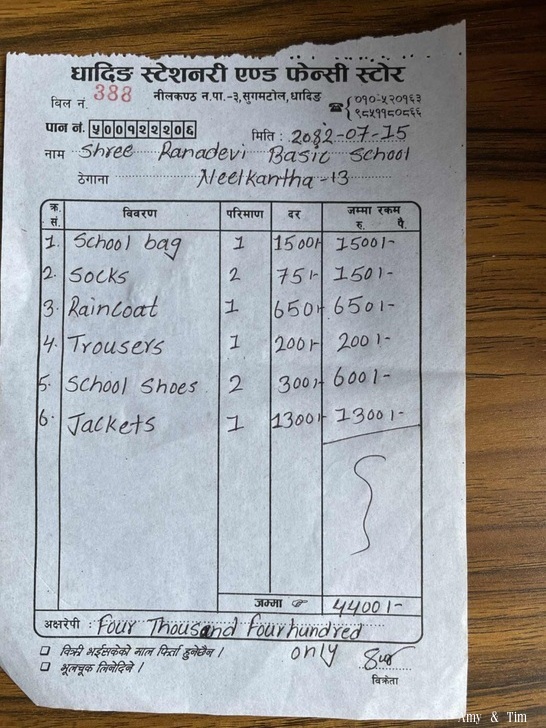 धादिङ स्टेशनरी एण्ड फेन्सी स्टोर
बिल नं. 388 नीलकण्ठ न.पा.-३, सुगमटोल, धादिङ ०१०-५२०१६३
९८५११८०८६६
पान नं. ५००१२२२०६ मिति : 2082-07-15
नाम Shree Ranadevi Basic School
ठेगाना Neelkantha-13
क्र. सं. विवरण परिमाण दर जम्मा रकम
रु. पै.
1. School bag 1 1500/- 1500/-
2. Socks 2 75/- 150/-
3. Raincoat 1 650/- 650/-
4. Trousers 1 200/- 200/-
5. School Shoes 2 300/- 600/-
6. Jackets 1 1300/- 1300/-
जम्मा 4400/-
अक्षरेपी : Four Thousand Four hundred
only
बिक्री भईसकेको माल फिर्ता हुनेछैन ।
भूलचूक लिनेदिने ।
विक्रेता
Amy & Tim